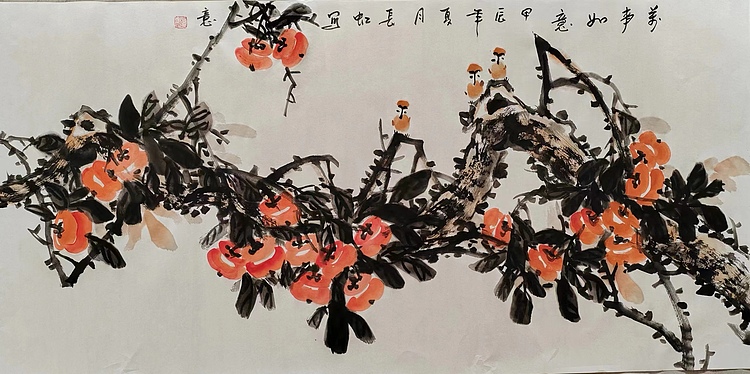 萬事如意甲辰年夏月長虹寫意